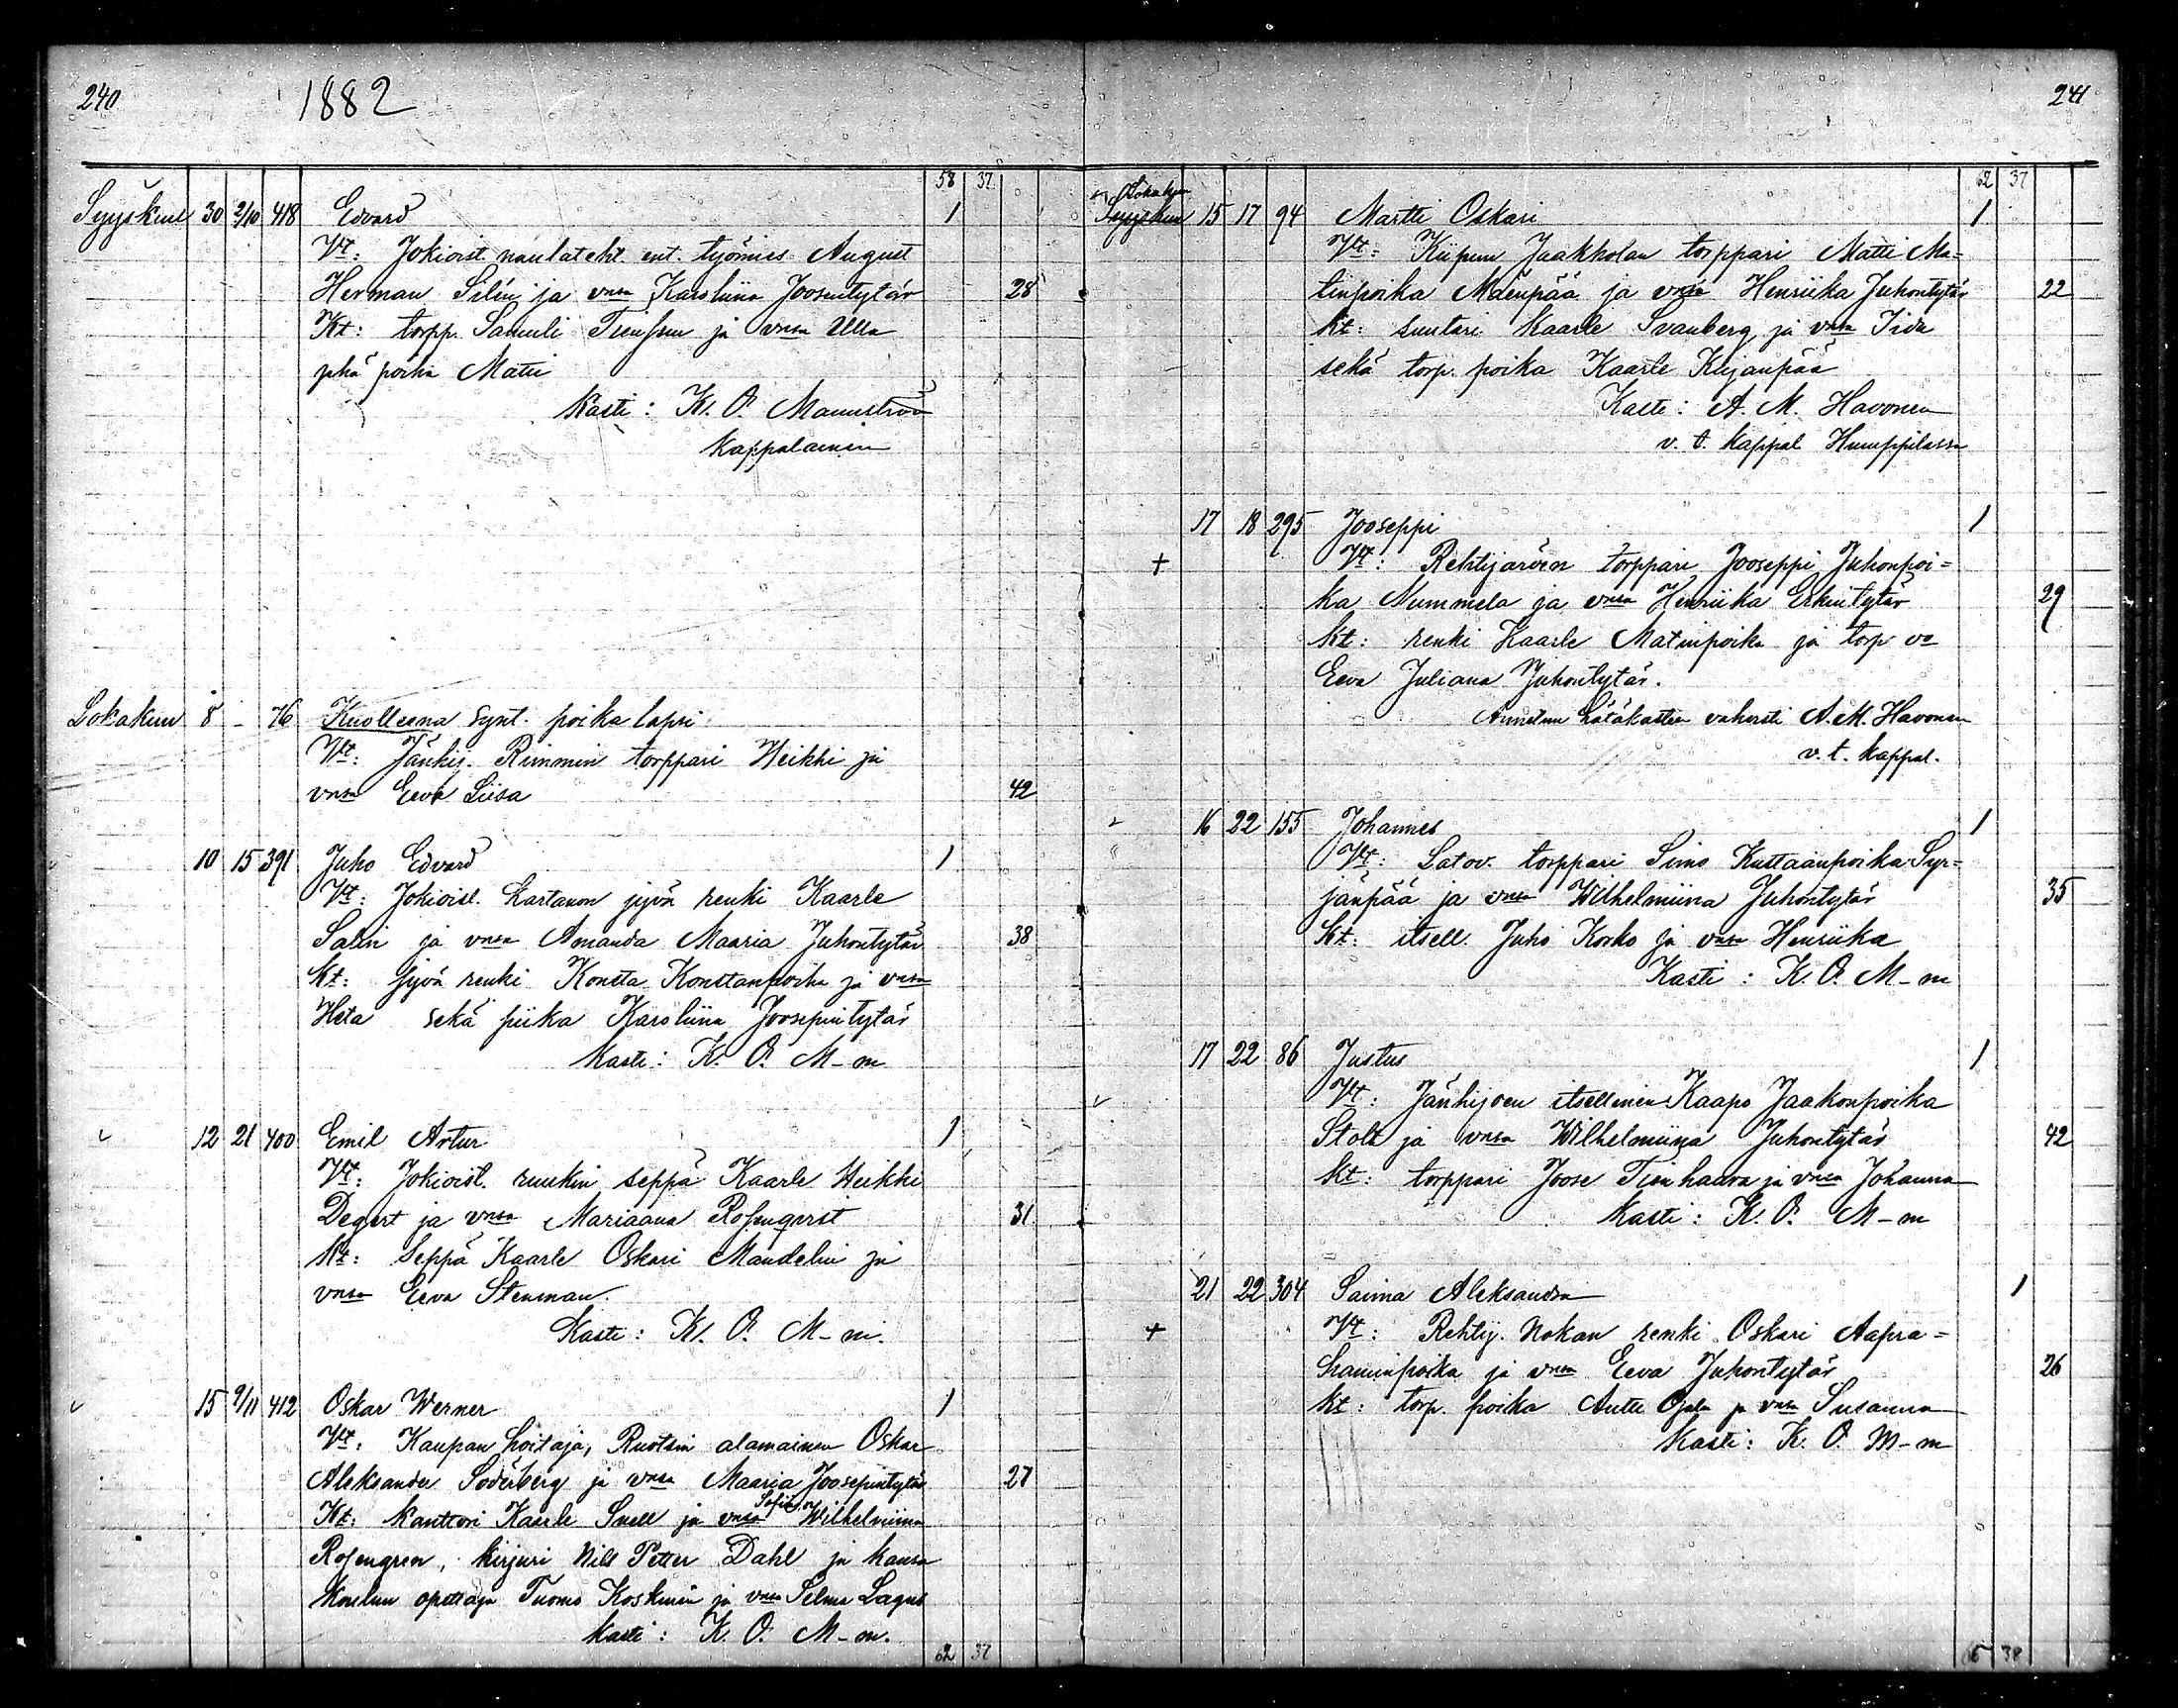 240
1882
58 37
Syyskuu 30 2/10 418 Edvard 1
Vt: Jokioist. naulateht. ent. työmies August
Herman Silén ja vmsa Karoliina Joosentytär 28
Kt: torpp. Samuli ja vmsa Ulla
poika Matti
Kasti: K. O. Mannström
Kappalainen
Lokakuu 8 - 76 Kuolleena synt. poika lapsi
Vt: Jänhij. Rimmin torppari Heikki ja
vmsa Eeva Liisa 42
10 15 391 Juho Edvard 1
Vt: Jokioist. Kartanon jyvä renki Kaarle
Salin ja vmsa Amanda Maaria Juhontytär 38
Kt: jyvä renki Konsta Konstanpoika ja vmsa
Heta sekä piika Karoliina Joosepintytär
Kasti: K. O. M-m
12 21 400 Emil Artur 1
Vt: Jokioist. ruukin seppä Kaarle Heikki
Degert ja vmsa Mariaana Rosenqvist 31
Kt: Seppä Kaarle Oskari Mandelin ja
vmsa Eeva Stenman
Kasti: K. O. M-m.
15 9/11 412 Oskar Werner 1
Vt: Kaupan hoitaja, Ruotsin alamainen Oskar
Aleksander Söderberg ja vmsa Maaria Joosepintytär 27
Kt: Kanttori Kaarle Snell ja vmsa Sofia Wilhelmiina
Rosengren, kirjuri Nils Petter Dahl ja kansa
koulun opettaja Tuomo Koskinen ja vmsa Selma Lagus
Kasti: K. O. M-m.
62 37
241
62 37
Lokakuu
Syyskuu 15 17 94 Martti Oskari 1
Vt: Kiipun Jaakkolan torppari Matti Ma-
tinpoika Mäenpää ja vmsa Henriika Juhontytär 22
Kt: suutari Kaarle Svanberg ja vmsa Iida
sekä torp. poika Kaarle Kujanpää
Kasti: A. M. Havonen
v. t. kappal Humppilassa
17 18 295 Jooseppi 1
+ Vt: Rehtijärven torppari Jooseppi Juhonpoi-
ka Nummela ja vmsa Henriika Erkintytär 29
Kt: renki Kaarle Matinpoika ja torp. vo
Eeva Juliana Juhontytär.
Annetun hätäkasteen vahvisti A. M. Havonen
v. t. kappal.
16 22 155 Johannes 1
Vt: Latov. torppari Simo Kustaanpoika Syr-
jänpää ja vmsa Wilhelmiina Juhontytär 35
Kt: itsell. Juho Korko ja vmsa Henriika
Kasti: K. O. M-m
17 22 86 Justus 1
Vt: Jänhijoen itsellinen Kaapo Jaakonpoika
Stolt ja vmsa Wilhelmiina Juhontytär 42
Kt: torppari Joose Tienhaara ja vmsa Johanna
Kasti: K. O. M-m
21 22 304 Saima Aleksandra 1
+ Vt: Rehtij. Nokan renki Oskari Aapra-
haminpoika ja vmsa Eeva Juhontytär 26
Kt: torp. poika Antti Ojala ja vmsa Susanna
Kasti: K. O. M-m
65 38